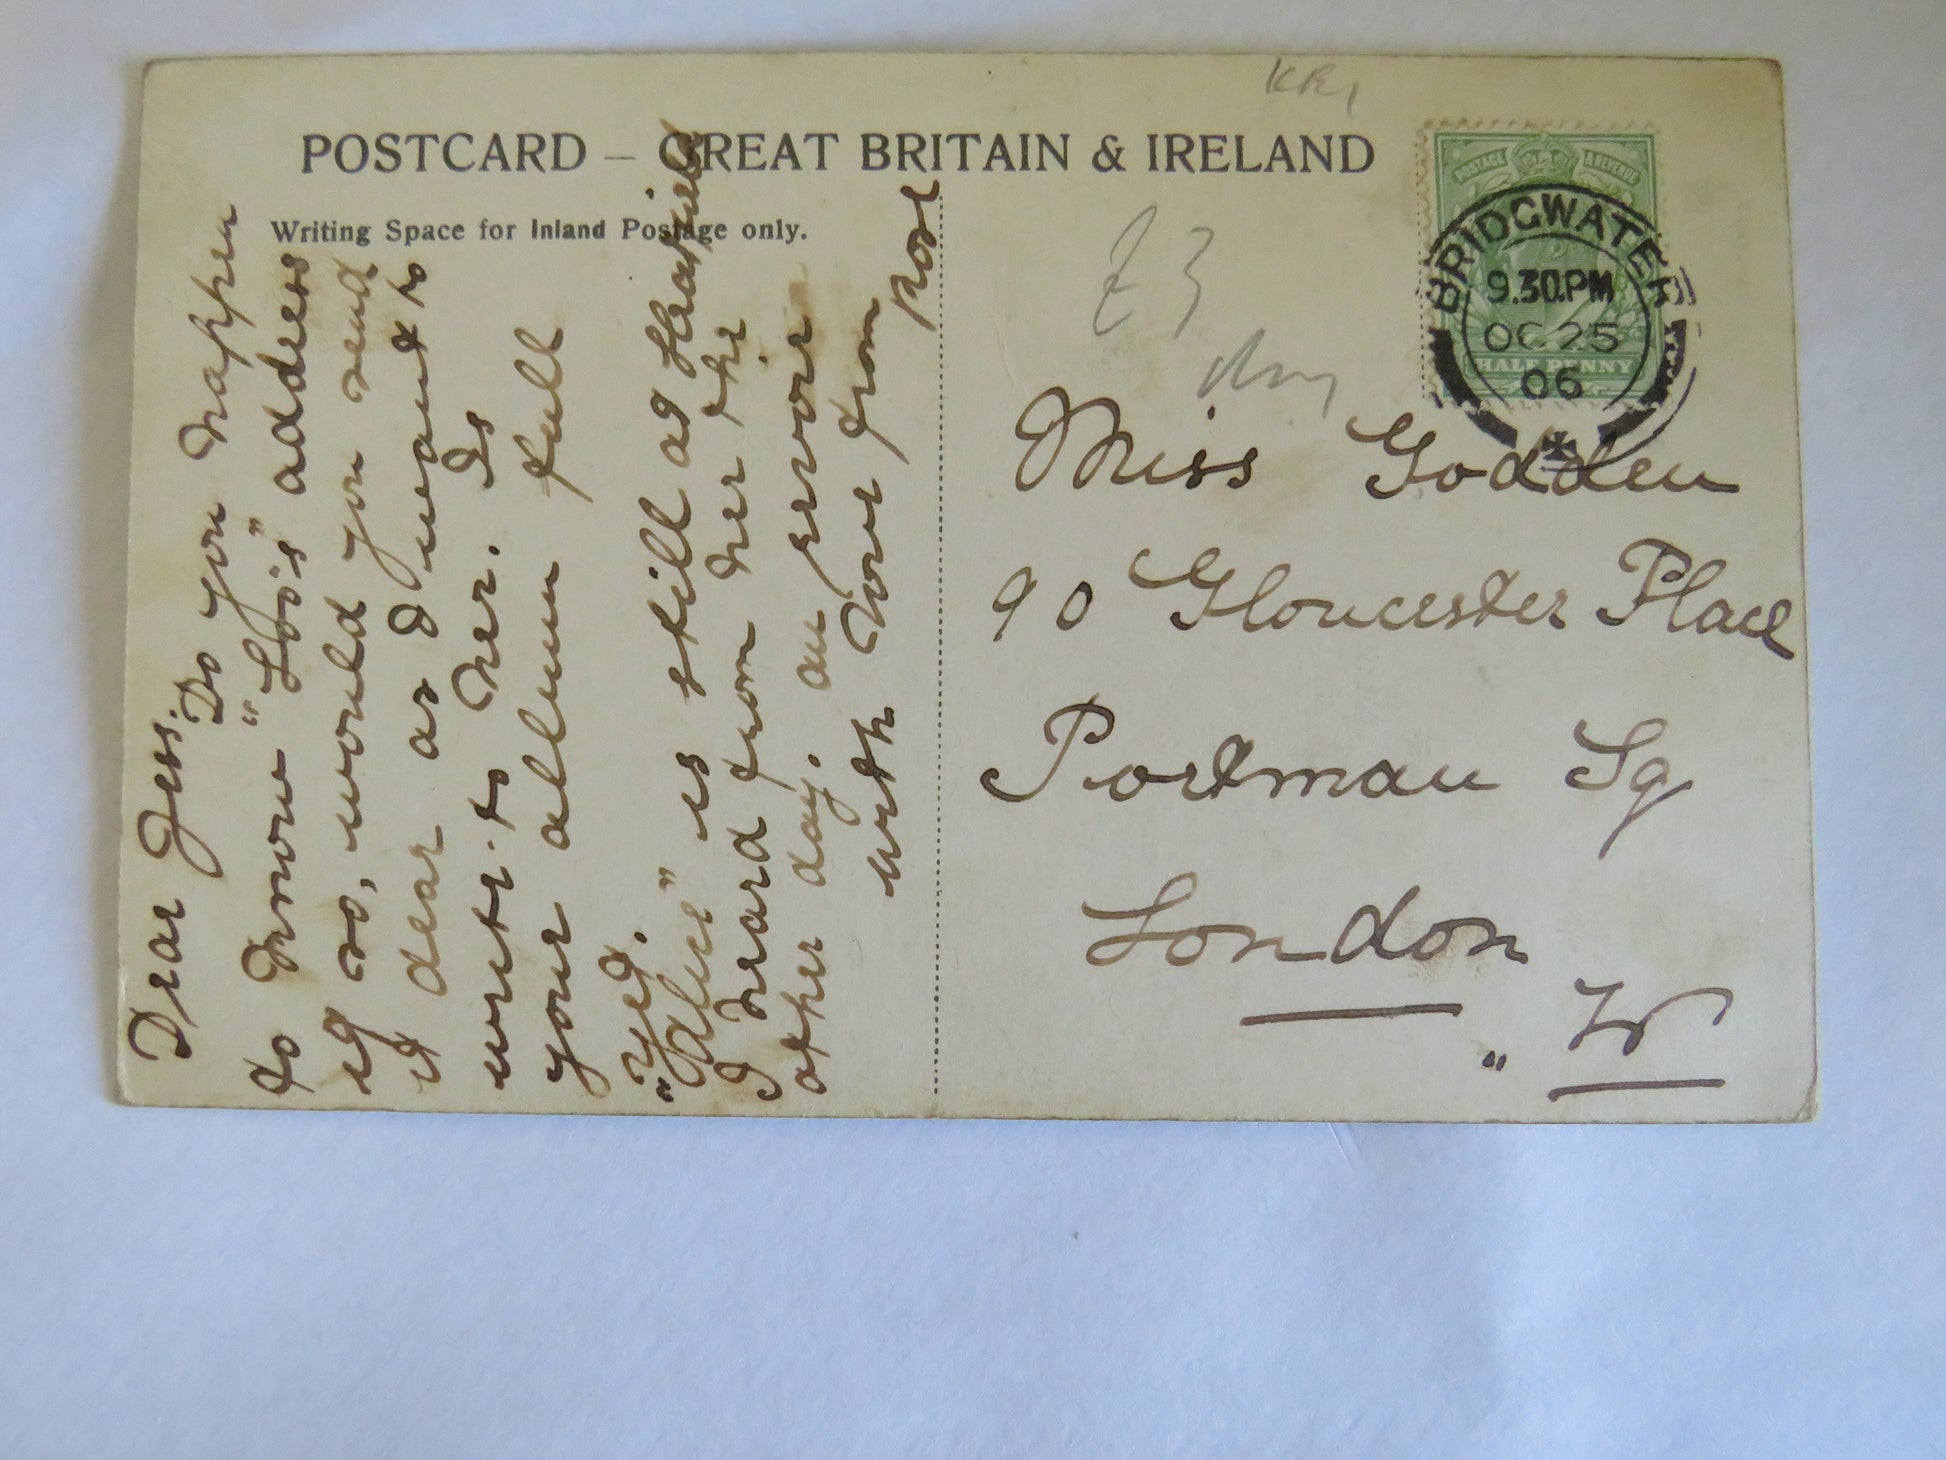 POSTCARD – GREAT BRITAIN & IRELAND
Writing Space for Inland Postage only.
Dear Jess.
Do you happen
to know "Loo's" address
if so, would you send
it dear as I want to
write to her. Is
your album full
yet.
"Alice" is still at
I heard from her the
other day. au revoir
with love from
POSTAGE & REVENUE
HALF PENNY
BRIDGWATER
9.30.PM
OC 25
06
£3
Miss Godden
90 Gloucester Place
Portman Sq
London
" W